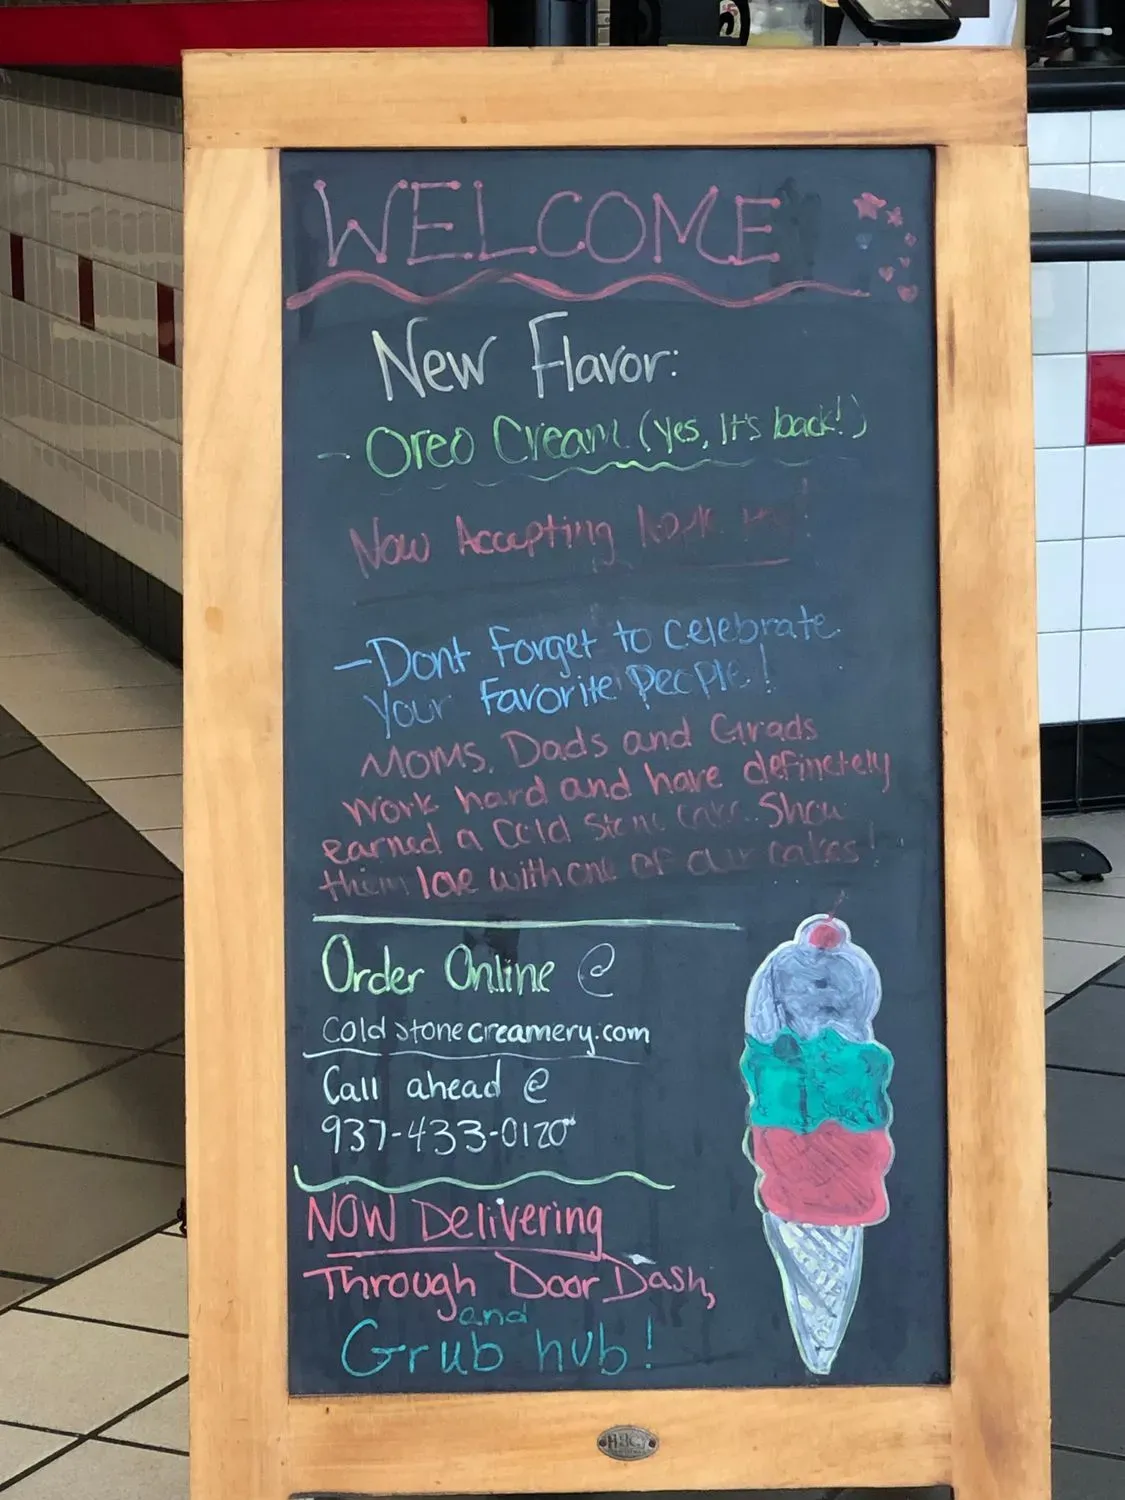 WELCOME
New Flavor:
- Oreo Cream (Yes, It's back!)
Now Accepting
- Dont Forget to celebrate
your Favorite People!
Moms, Dads and Grads
work hard and have definetely
earned a Cold Stone Cake. Show
them love with one of our cakes!
Order Online @
Coldstonecreamery.com
Call ahead @
937-433-0120
NOW Delivering
Through DoorDash,
and
Grub hub!